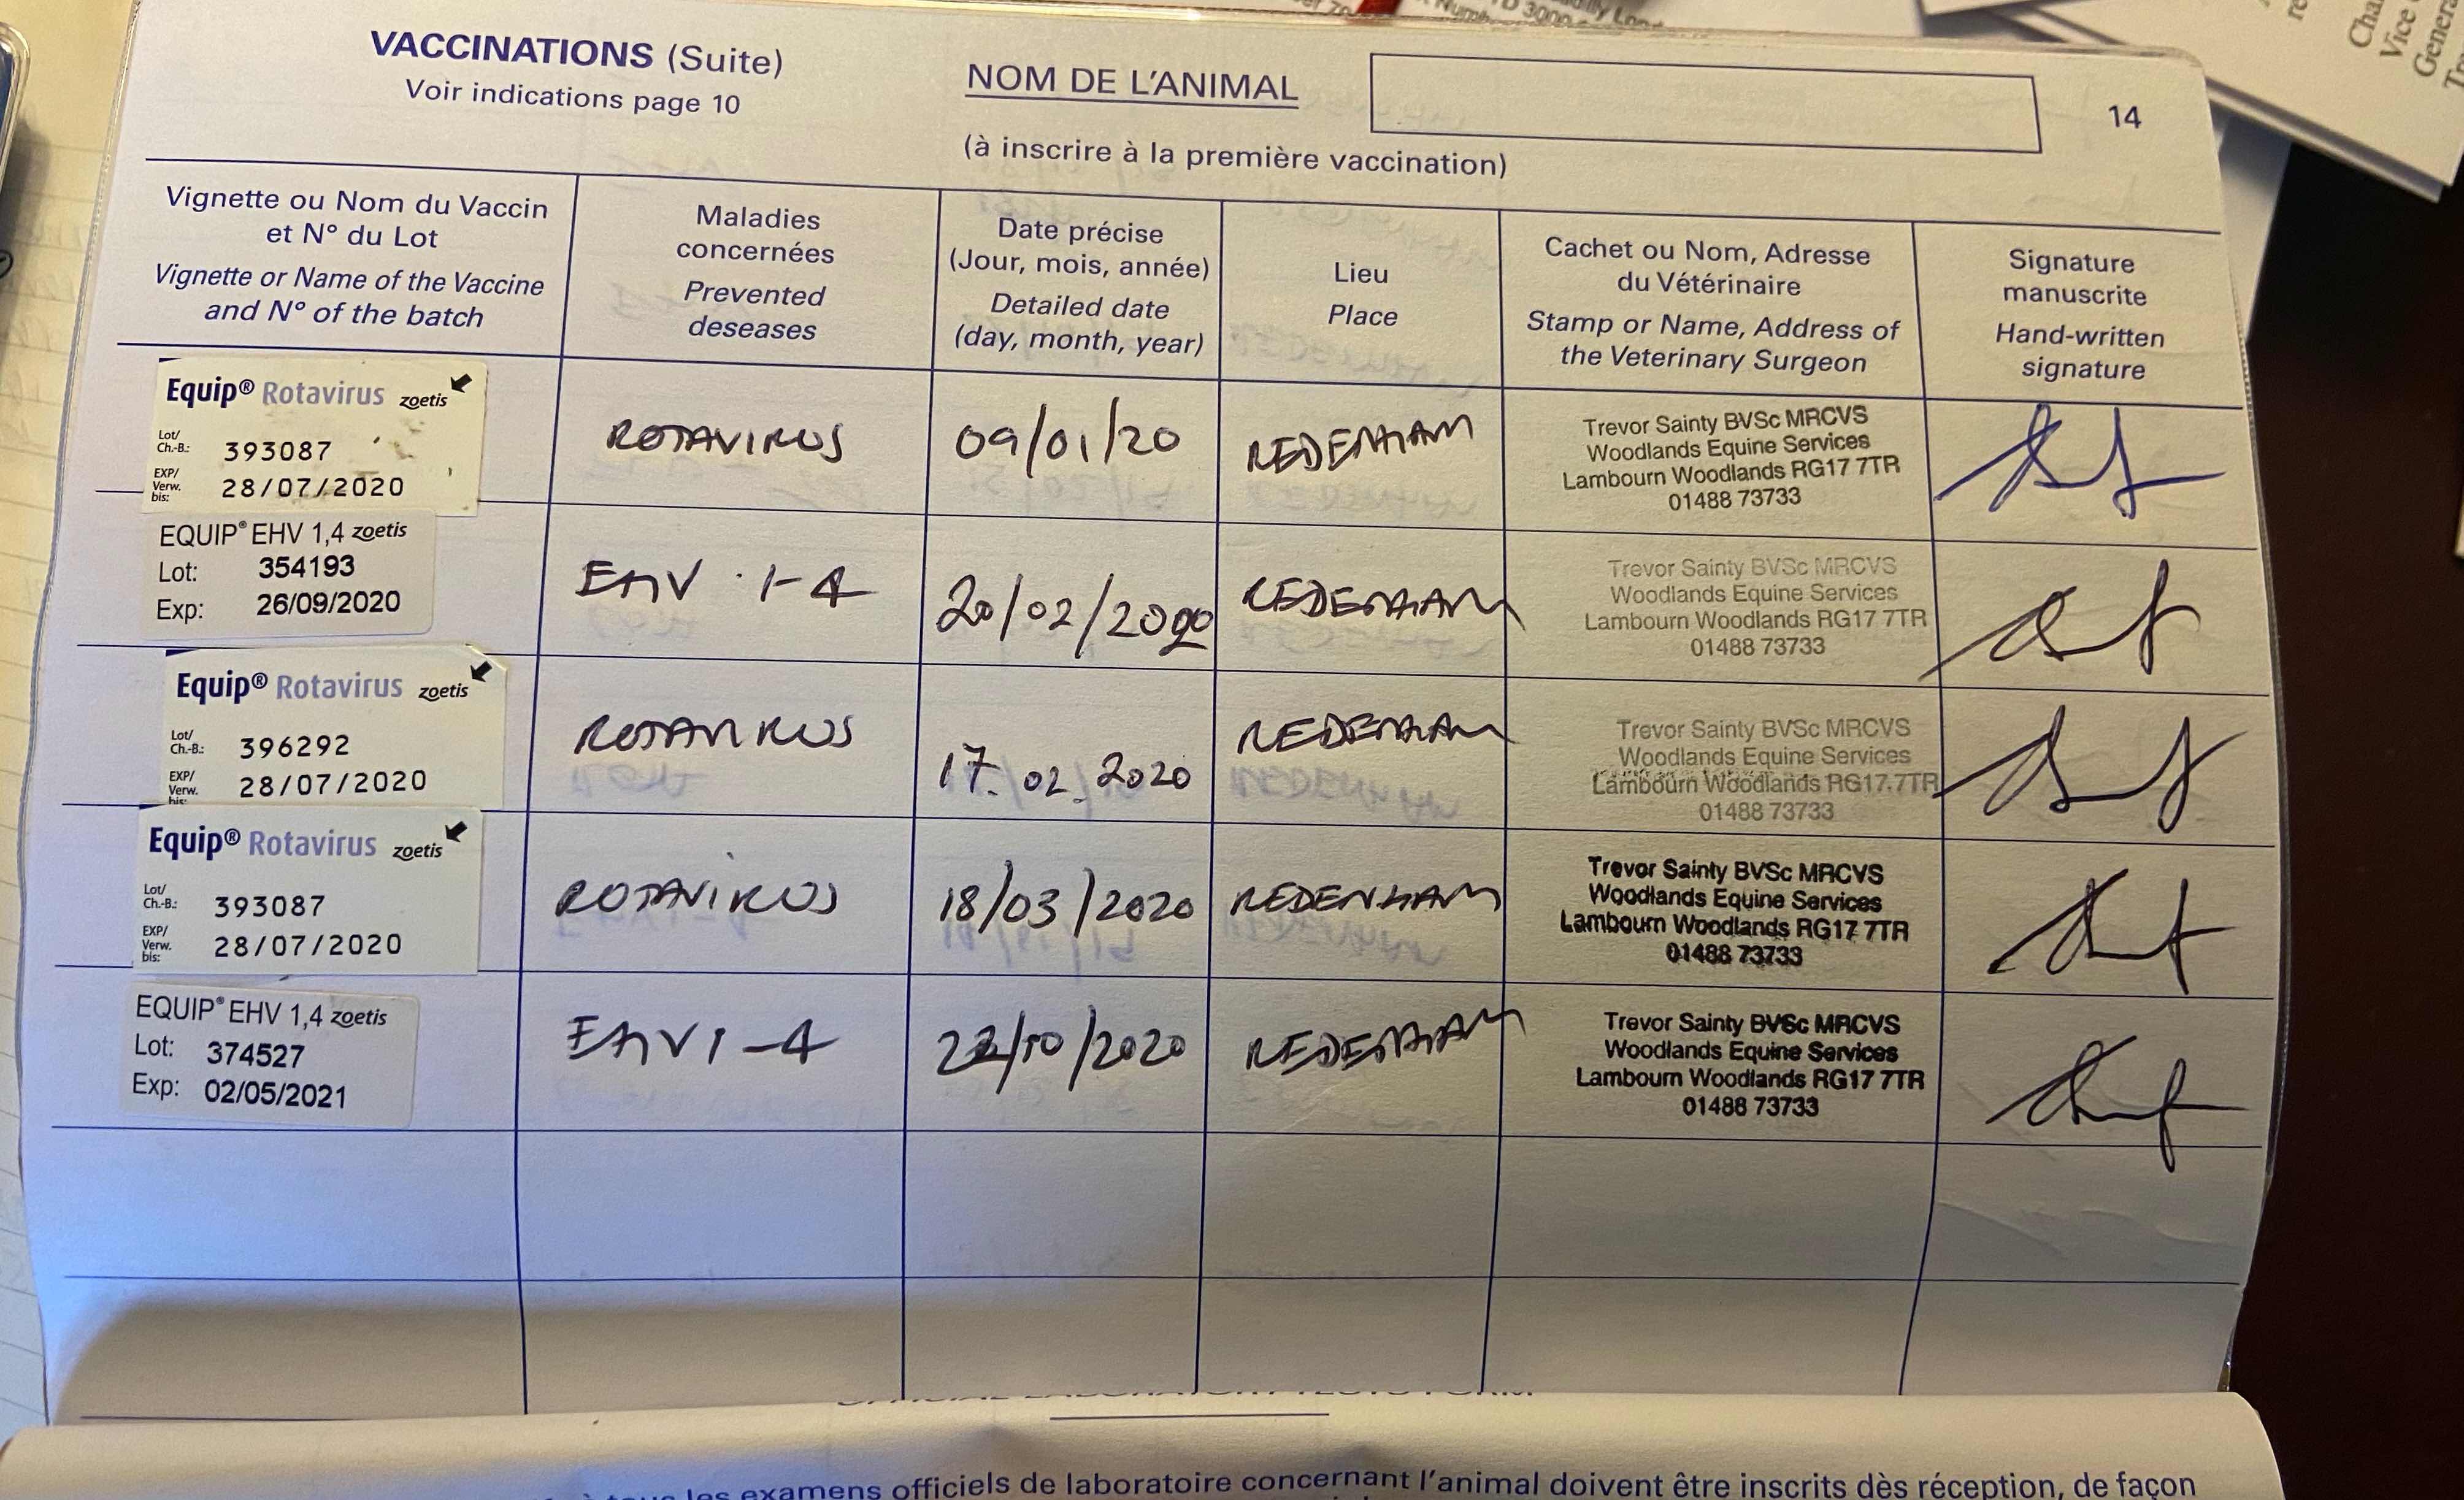 VACCINATIONS (Suite)
Voir indications page 10
NOM DE L'ANIMAL
(à inscrire à la première vaccination)
14
Vignette ou Nom du Vaccin
et N° du Lot
Vignette or Name of the Vaccine
and N° of the batch
Maladies
concernées
Prevented
deseases
Date précise
(Jour, mois, année)
Detailed date
(day, month, year)
Lieu
Place
Cachet ou Nom, Adresse
du Vétérinaire
Stamp or Name, Address of
the Veterinary Surgeon
Signature
manuscrite
Hand-written
signature
Equip® Rotavirus zoetis
Lot/
Ch.-B.: 393087
EXP/
Verw.
bis: 28/07/2020
ROTAVIRUS
09/01/20
REDENHAM
Trevor Sainty BVSc MRCVS
Woodlands Equine Services
Lambourn Woodlands RG17 7TR
01488 73733
EQUIP® EHV 1,4 zoetis
Lot: 354193
Exp: 26/09/2020
EHV 1-4
20/02/2020
REDENHAM
Trevor Sainty BVSc MRCVS
Woodlands Equine Services
Lambourn Woodlands RG17 7TR
01488 73733
Equip® Rotavirus zoetis
Lot/
Ch.-B.: 396292
EXP/
Verw.
bis: 28/07/2020
ROTAVIRUS
17.02.2020
REDENHAM
Trevor Sainty BVSc MRCVS
Woodlands Equine Services
Lambourn Woodlands RG17 7TR
01488 73733
Equip® Rotavirus zoetis
Lot/
Ch.-B.: 393087
EXP/
Verw.
bis: 28/07/2020
ROTAVIRUS
18/03/2020
REDENHAM
Trevor Sainty BVSc MRCVS
Woodlands Equine Services
Lambourn Woodlands RG17 7TR
01488 73733
EQUIP® EHV 1,4 zoetis
Lot: 374527
Exp: 02/05/2021
EHV 1-4
22/10/2020
REDENHAM
Trevor Sainty BVSc MRCVS
Woodlands Equine Services
Lambourn Woodlands RG17 7TR
01488 73733
les examens officiels de laboratoire concernant l'animal doivent être inscrits dès réception, de façon